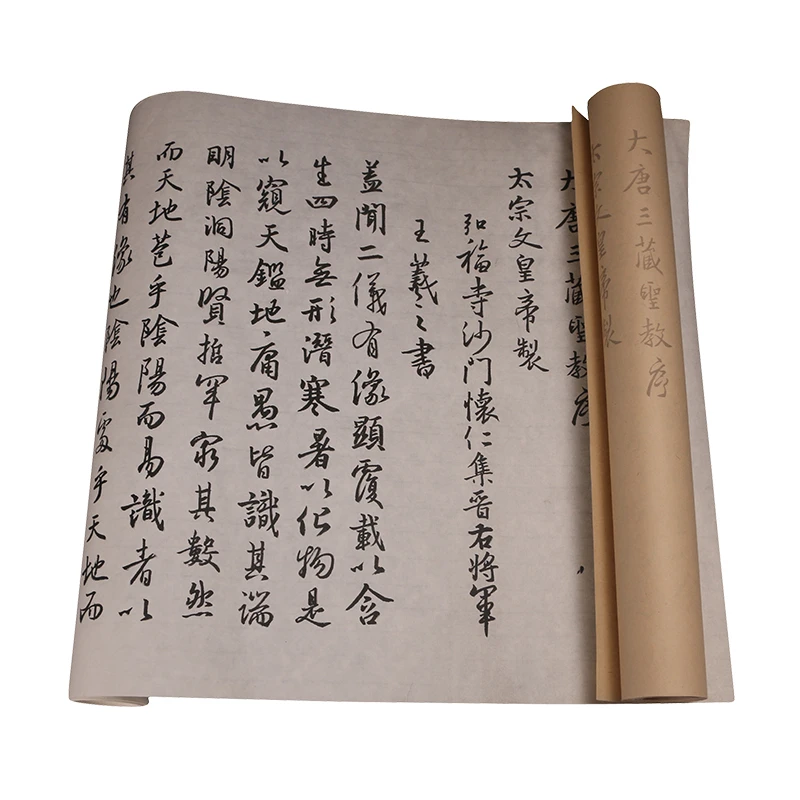 大唐三藏聖教序
太宗文皇帝製
大唐三藏聖教序
太宗文皇帝製
弘福寺沙門懷仁集晉右將軍
王羲之書
蓋聞二儀有像顯覆載以含
生四時無形潛寒暑以化物是
以窺天鑑地庸愚皆識其端
明陰洞陽賢哲罕窮其數然
而天地苞乎陰陽而易識者以
其有像也陰陽處乎天地而